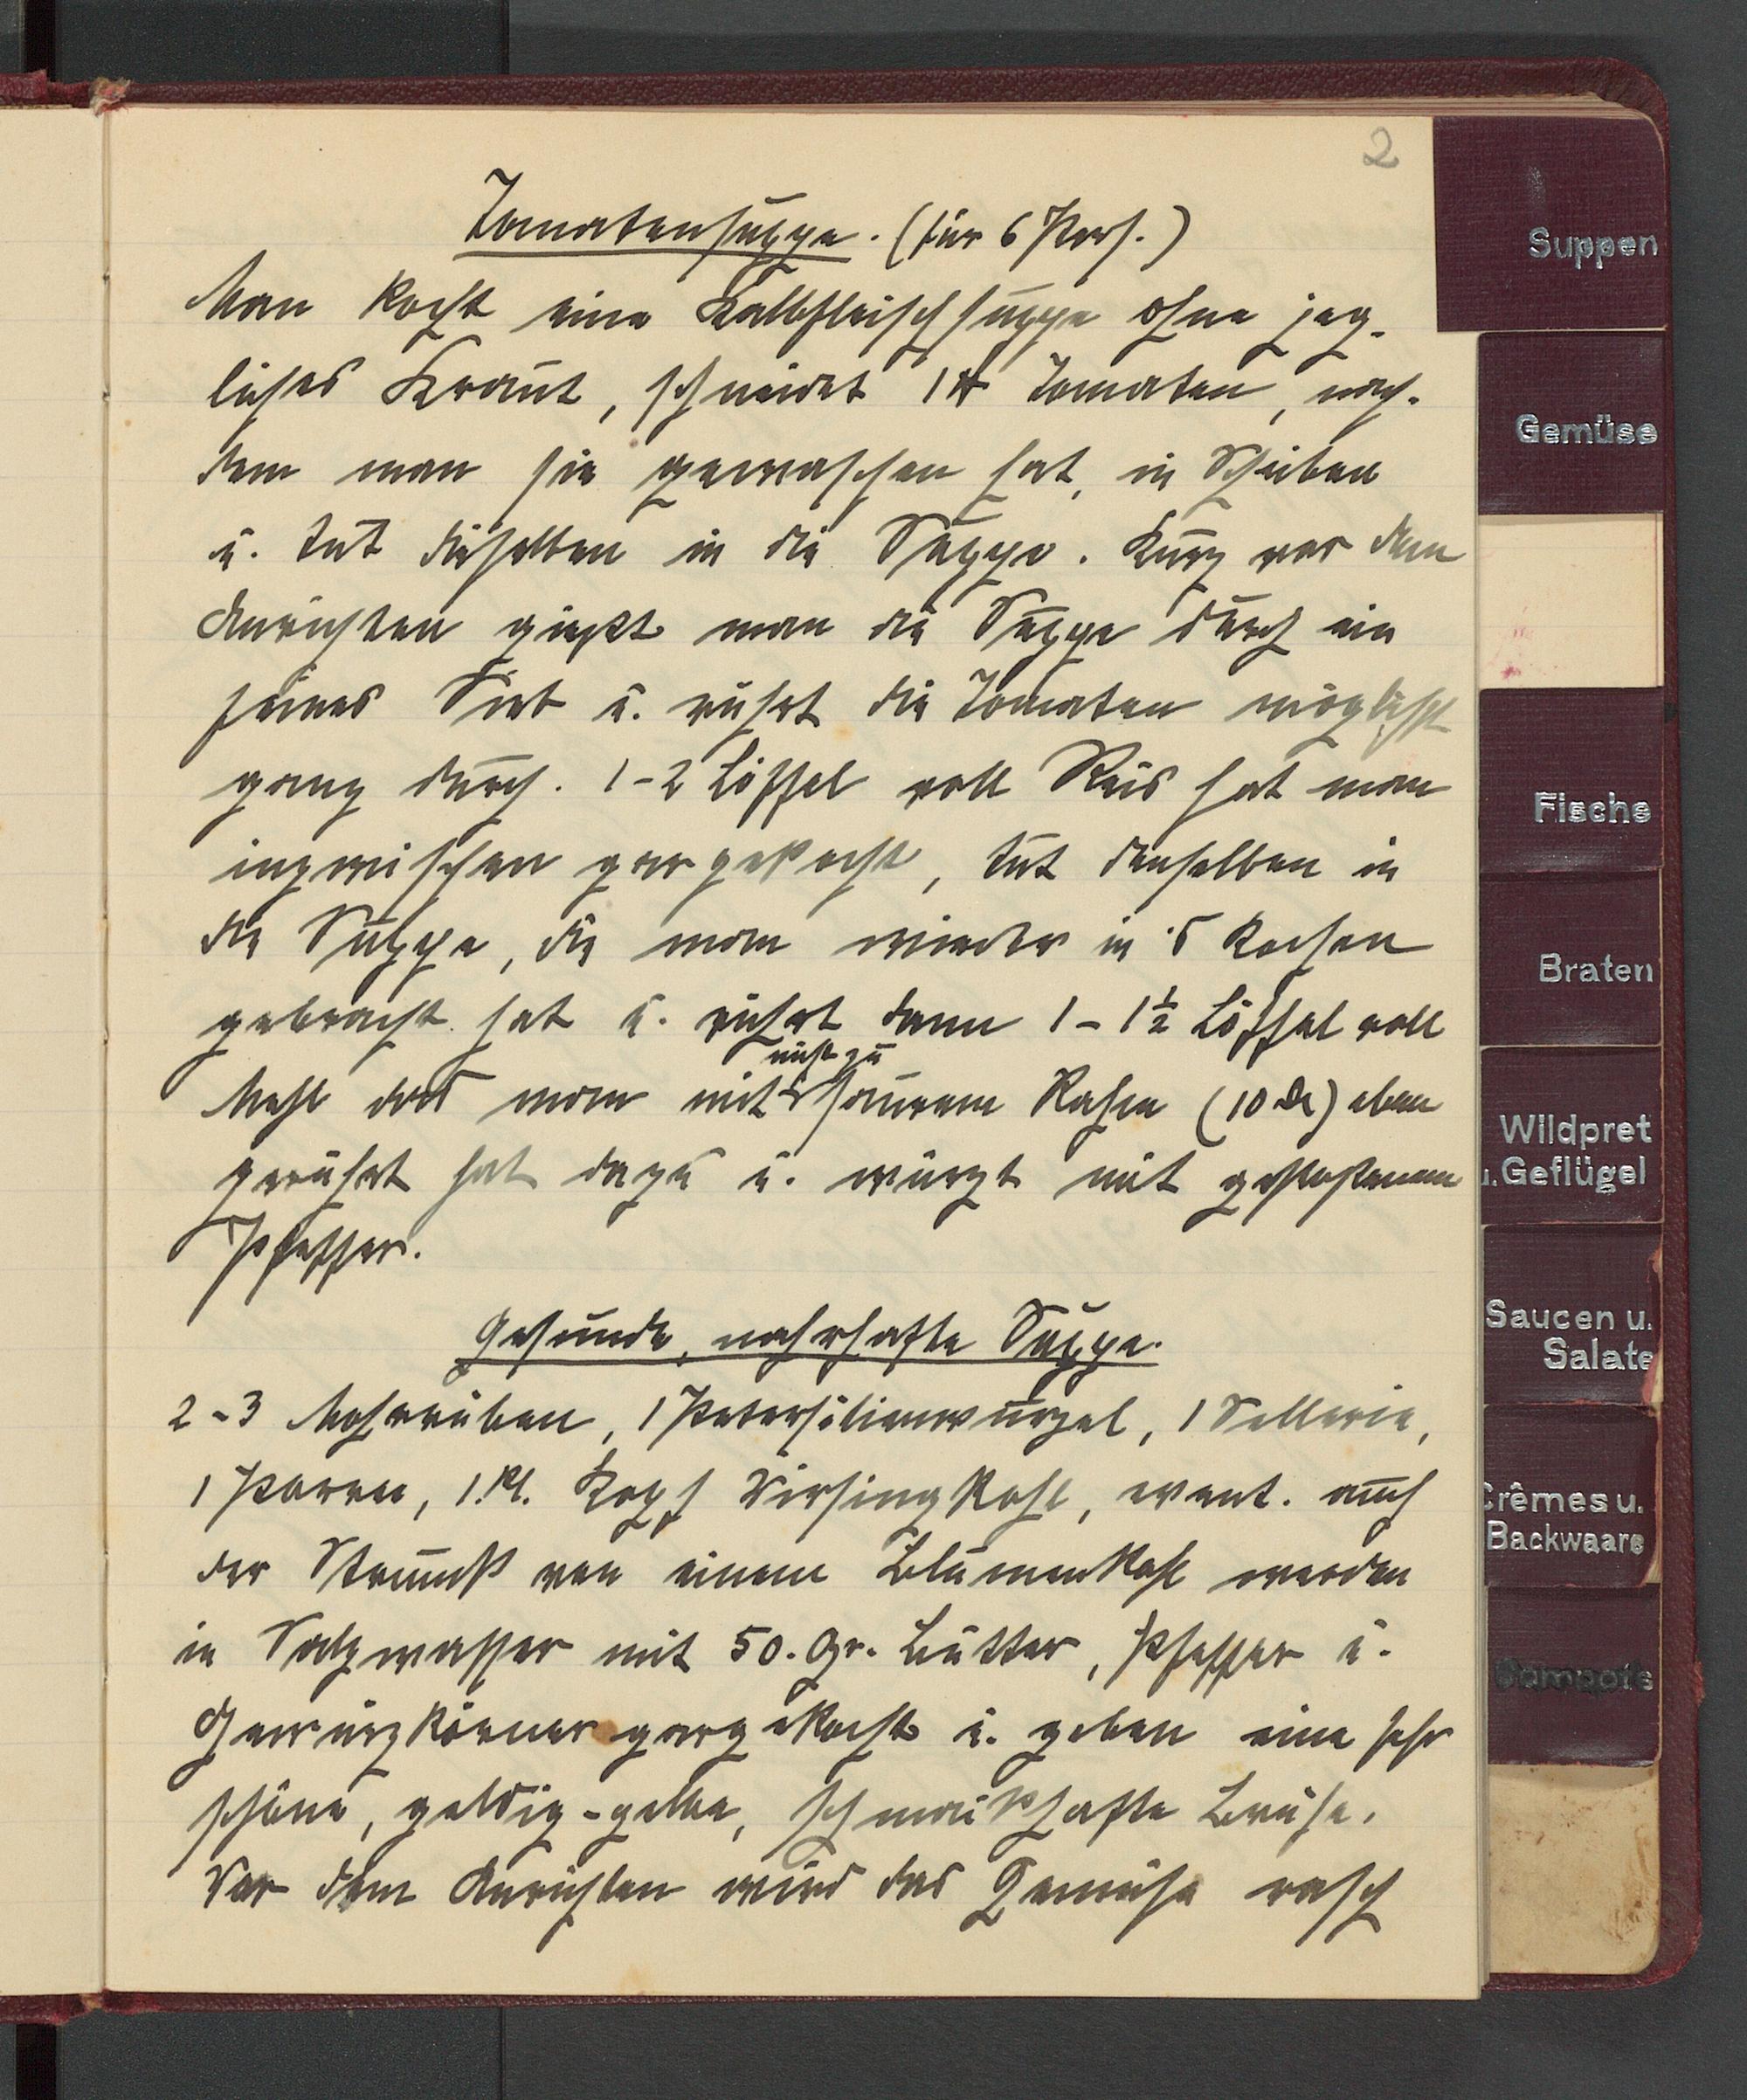 2
Tomatensuppe. (für 6 Pers.)
Man kocht eine Kalbfleischsuppe ohne jeg-
liches Kraut, schneidet 1 ℔ Tomaten, nach-
dem man sie gewaschen hat, in Scheiben
u. tut dieselben in die Suppe. Kurz vor dem
Anrichten gießt man die Suppe durch ein
feines Sieb u. rührt die Tomaten möglichst
ganz durch. 1-2 Löffel voll Reis hat man
inzwischen gar gekocht, tut denselben in
die Suppe, die man wieder in's Kochen
gebracht hat u. rührt dann 1 - 1½ Löffel voll
nicht zu
Mehl das man mit saurem Rahm (10 ₰) eben
gerührt hat dazu u. würzt mit gestoßenem
Pfeffer.
Gesunde, nahrhafte Suppe.
2-3 Mohrrüben, 1 Petersilienwurzel, 1 Sellerie,
1 Porree, 1 kl. Kopf Wirsingkohl, event. auch
der Strunk von einem Blumenkohl werden
in Salzwasser mit 50. Gr. Butter, Pfeffer u.
Gewürzkörner gargekocht u. geben eine sehr
schöne, goldig-gelbe, schmackhafte Brühe.
Vor dem Anrichten wird das Gemüse rasch
Suppen
Gemüse
Fische
Braten
Wildpret
u. Geflügel
Saucen u.
Salate
Crêmes u.
Backwaare
Compots